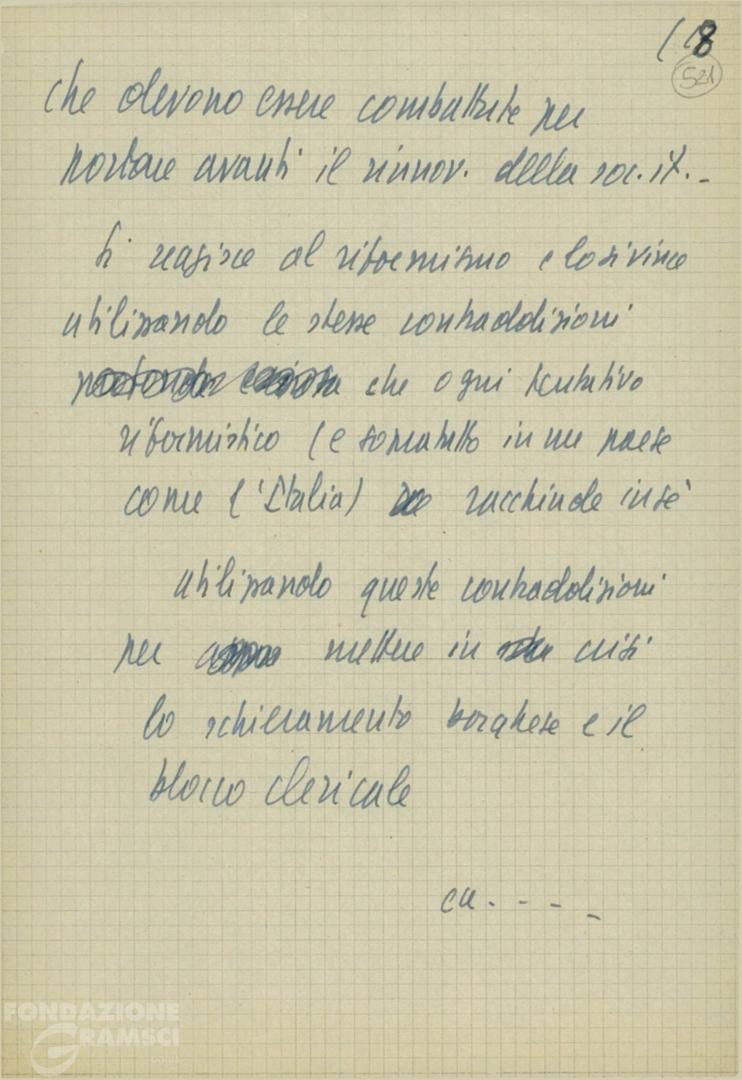 18
521
che devono essere combattute per
portare avanti il rinnov. della soc. it. -
Si reagisce al riformismo e lo si vince
utilizzando le stesse contraddizioni
che ogni tentativo
riformistico (e sopratutto in un paese
come l'Italia) racchiude in sè
utilizzando queste contraddizioni
per mettere in crisi
lo schieramento borghese e il
blocco clericale
cu. - - - -
FONDAZIONE
GRAMSCI